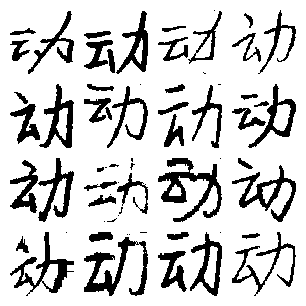 动动动动
动动动动
动动动动
动动动动